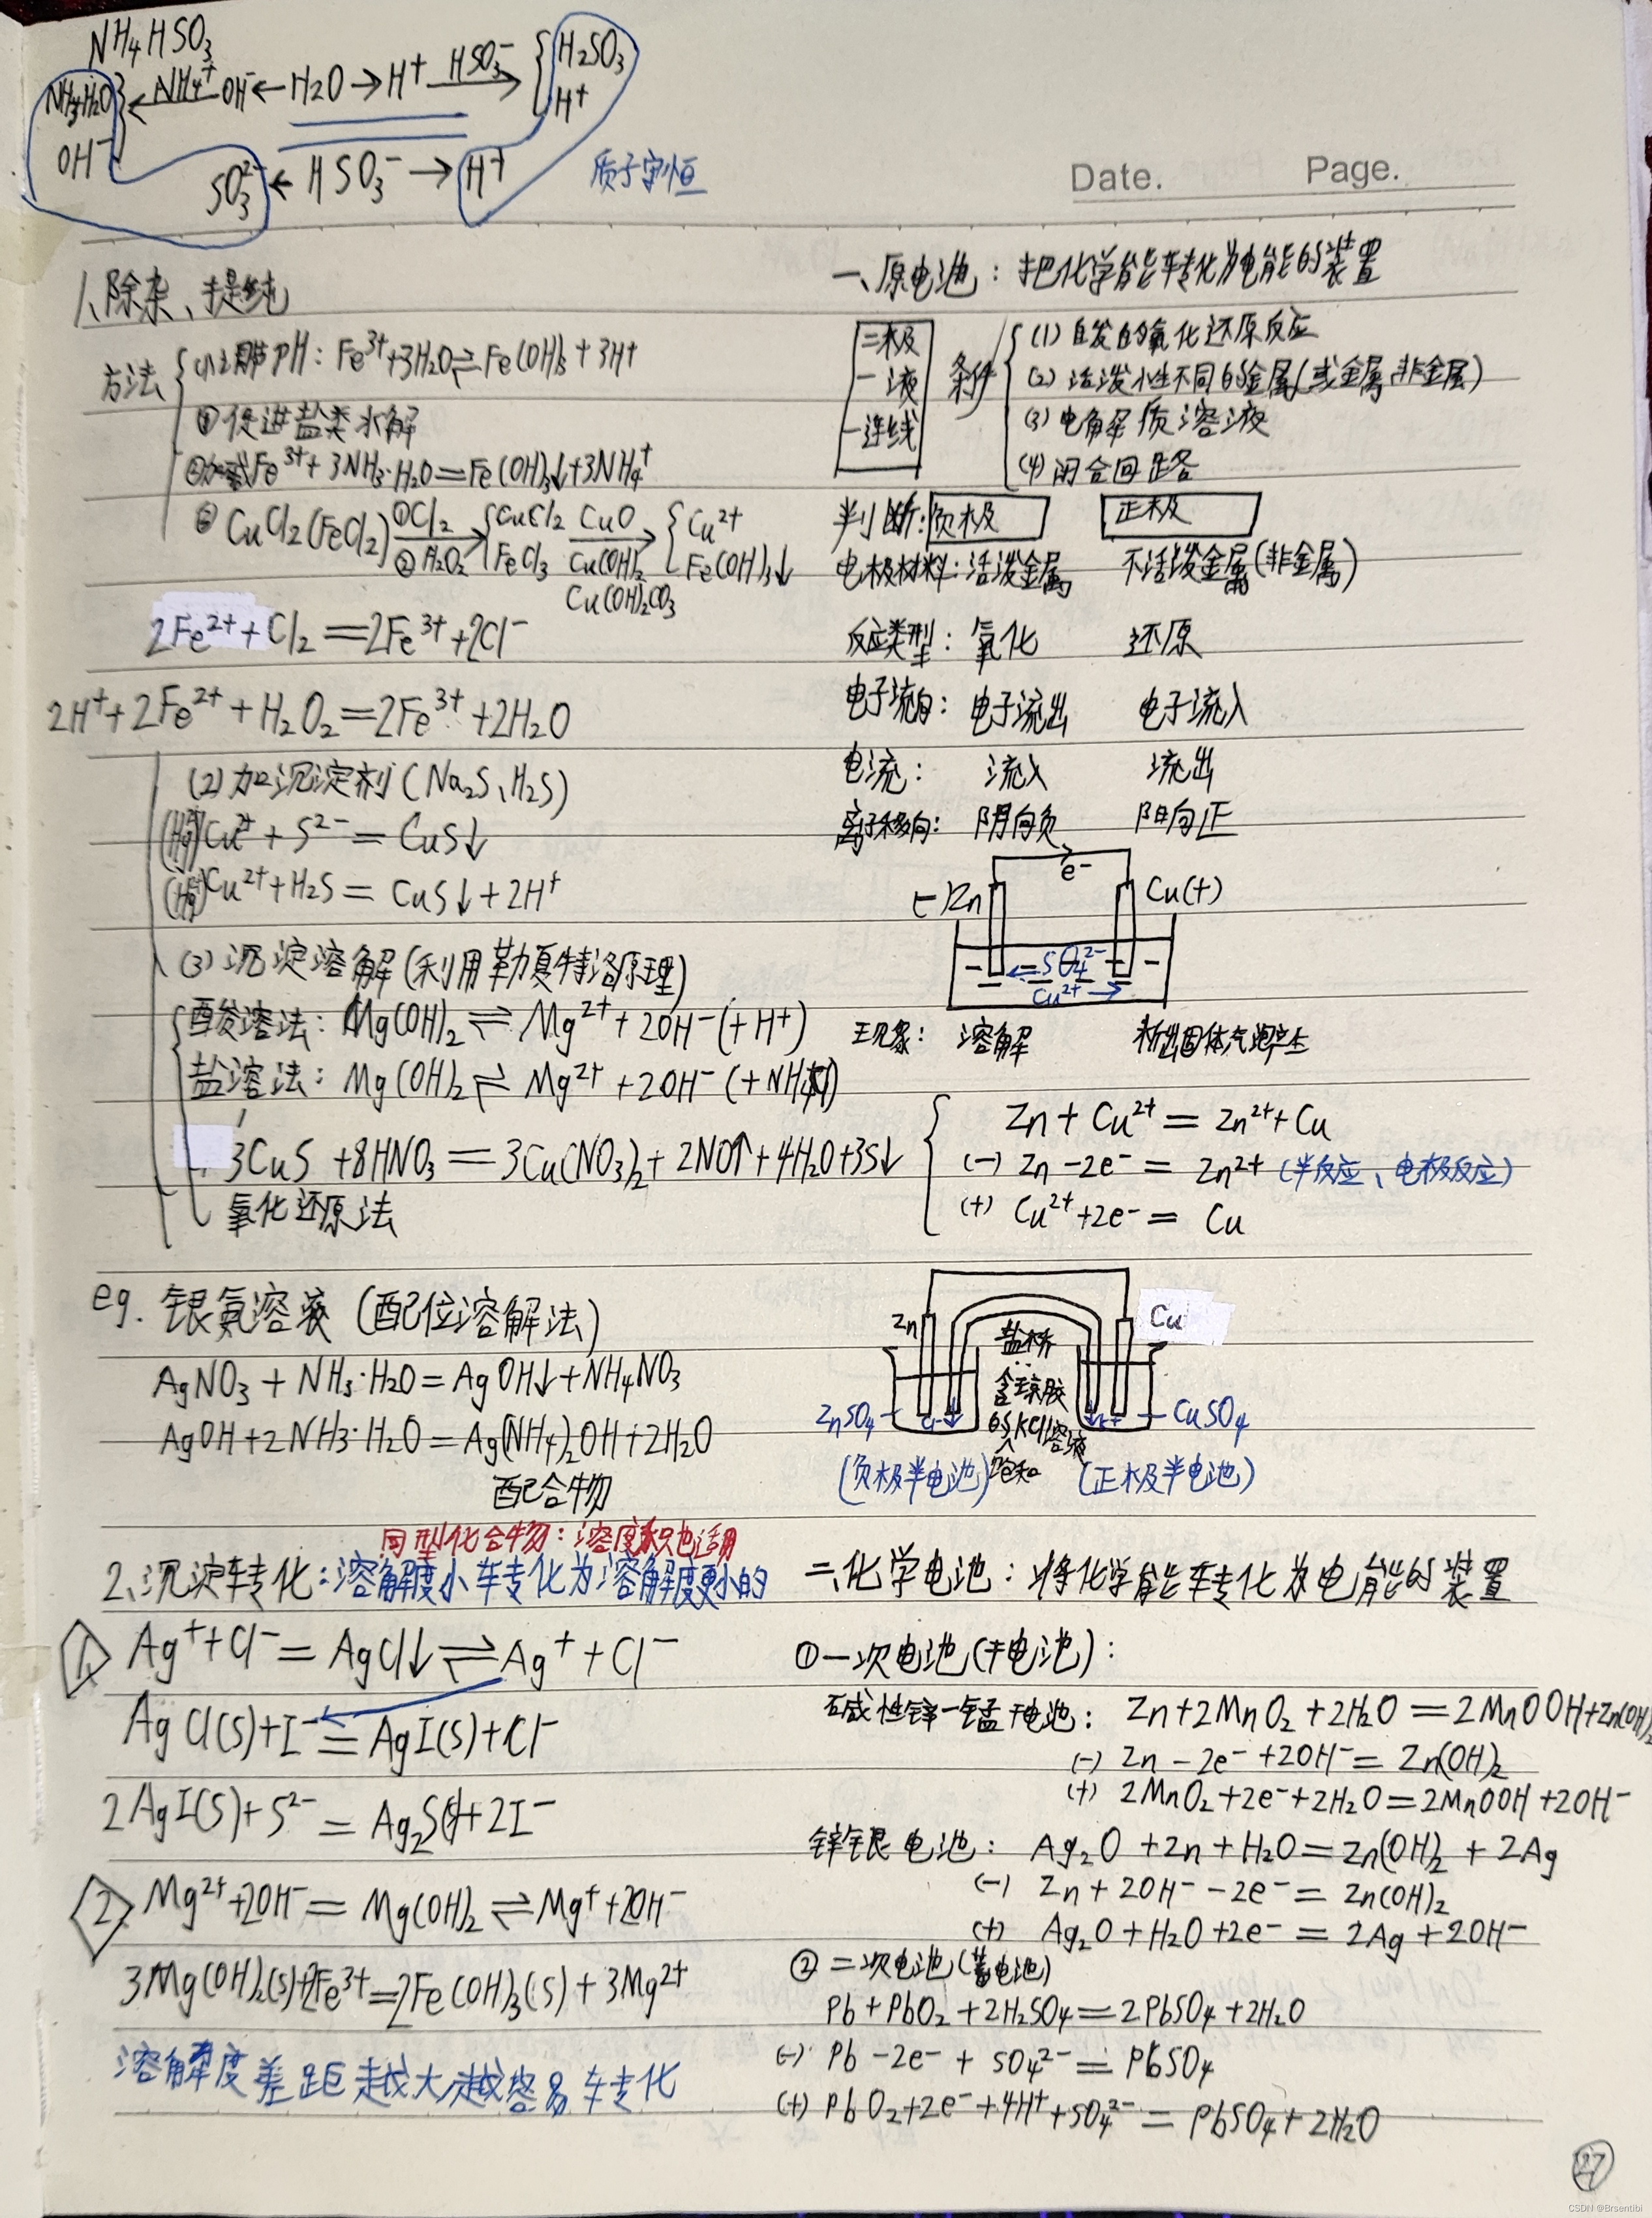 NH₄HSO₃
NH₃·H₂O NH₄⁺ OH⁻ ← H₂O → H⁺ HSO₃⁻ H₂SO₃
OH⁻ H⁺
SO₃²⁻ ← HSO₃⁻ → H⁺ 质子守恒
Date. Page.
1、除杂、提纯
方法 (1)调节PH：Fe³⁺+3H₂O⇌Fe(OH)₃+3H⁺
①促进盐类水解
②加碱Fe³⁺+3NH₃·H₂O=Fe(OH)₃↓+3NH₄⁺
③CuCl₂(FeCl₂) ①Cl₂ ②H₂O₂ → CuCl₂ FeCl₃ CuO Cu(OH)₂ Cu(OH)₂CO₃ → Cu²⁺ Fe(OH)₃↓
2Fe²⁺+Cl₂=2Fe³⁺+2Cl⁻
2H⁺+2Fe²⁺+H₂O₂=2Fe³⁺+2H₂O
(2)加沉淀剂(Na₂S、H₂S)
(Hg²⁺)Cu²⁺+S²⁻=CuS↓
(Hg²⁺)Cu²⁺+H₂S=CuS↓+2H⁺
(3)沉淀溶解(利用勒夏特洛原理)
酸溶法：Mg(OH)₂⇌Mg²⁺+2OH⁻(+H⁺)
盐溶法：Mg(OH)₂⇌Mg²⁺+2OH⁻(+NH₄Cl)
3CuS+8HNO₃=3Cu(NO₃)₂+2NO↑+4H₂O+3S↓
氧化还原法
eg. 银氨溶液(配位溶解法)
AgNO₃+NH₃·H₂O=AgOH↓+NH₄NO₃
AgOH+2NH₃·H₂O=Ag(NH₄)₂OH+2H₂O
配合物
同型化合物：溶度积也适用
2、沉淀转化：溶解度小转化为溶解度更小的
1. Ag⁺+Cl⁻=AgCl↓⇌Ag⁺+Cl⁻
AgCl(s)+I⁻=AgI(s)+Cl⁻
2AgI(s)+S²⁻=Ag₂S(s)+2I⁻
2. Mg²⁺+2OH⁻=Mg(OH)₂⇌Mg⁺+2OH⁻
3Mg(OH)₂(s)+2Fe³⁺=2Fe(OH)₃(s)+3Mg²⁺
溶解度差距越大,越容易转化
一、原电池：把化学能转化为电能的装置
二极
一液
一连线
条件 (1)自发的氧化还原反应
(2)活泼性不同的金属(或金属,非金属)
(3)电解质溶液
(4)闭合回路
判断：负极 正极
电极材料：活泼金属 不活泼金属(非金属)
反应类型：氧化 还原
电子流向：电子流出 电子流入
电流：流入 流出
离子移向：阴向负 阳向正
e⁻
(-)Zn Cu(+)
←SO₄²⁻
Cu²⁺→
现象：溶解 析出固体气泡产生
Zn+Cu²⁺=Zn²⁺+Cu
(-) Zn-2e⁻=Zn²⁺(半反应、电极反应)
(+) Cu²⁺+2e⁻=Cu
Zn 盐桥 Cu
含琼胶
ZnSO₄ Cl⁻↓ 的KCl溶液 K⁺ CuSO₄
(负极半电池) 饱和 (正极半电池)
二、化学电池：将化学能转化为电能的装置
①一次电池(干电池)：
碱性锌-锰干电池：Zn+2MnO₂+2H₂O=2MnOOH+Zn(OH)₂
(-) Zn-2e⁻+2OH⁻=Zn(OH)₂
(+) 2MnO₂+2e⁻+2H₂O=2MnOOH+2OH⁻
锌银电池：Ag₂O+Zn+H₂O=Zn(OH)₂+2Ag
(-) Zn+2OH⁻-2e⁻=Zn(OH)₂
(+) Ag₂O+H₂O+2e⁻=2Ag+2OH⁻
②二次电池(蓄电池)
Pb+PbO₂+2H₂SO₄=2PbSO₄+2H₂O
(-) Pb-2e⁻+SO₄²⁻=PbSO₄
(+) PbO₂+2e⁻+4H⁺+SO₄²⁻=PbSO₄+2H₂O
27
CSDN @Brsentibi